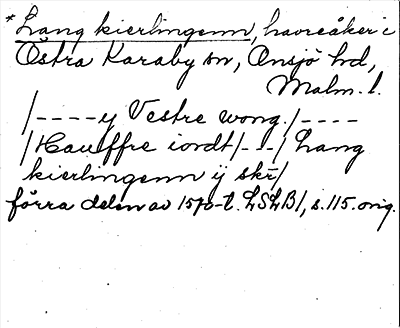 *Lang kierlingenn, havreåker i
Östra Karaby sn, Onsjö hd,
Malm. l.
/----y Vestre wong./----
/Hauffre iordt/---/Lang
kierlingenn ij skr/
förra delen av 1570-t. LSLB1, s. 115. orig.